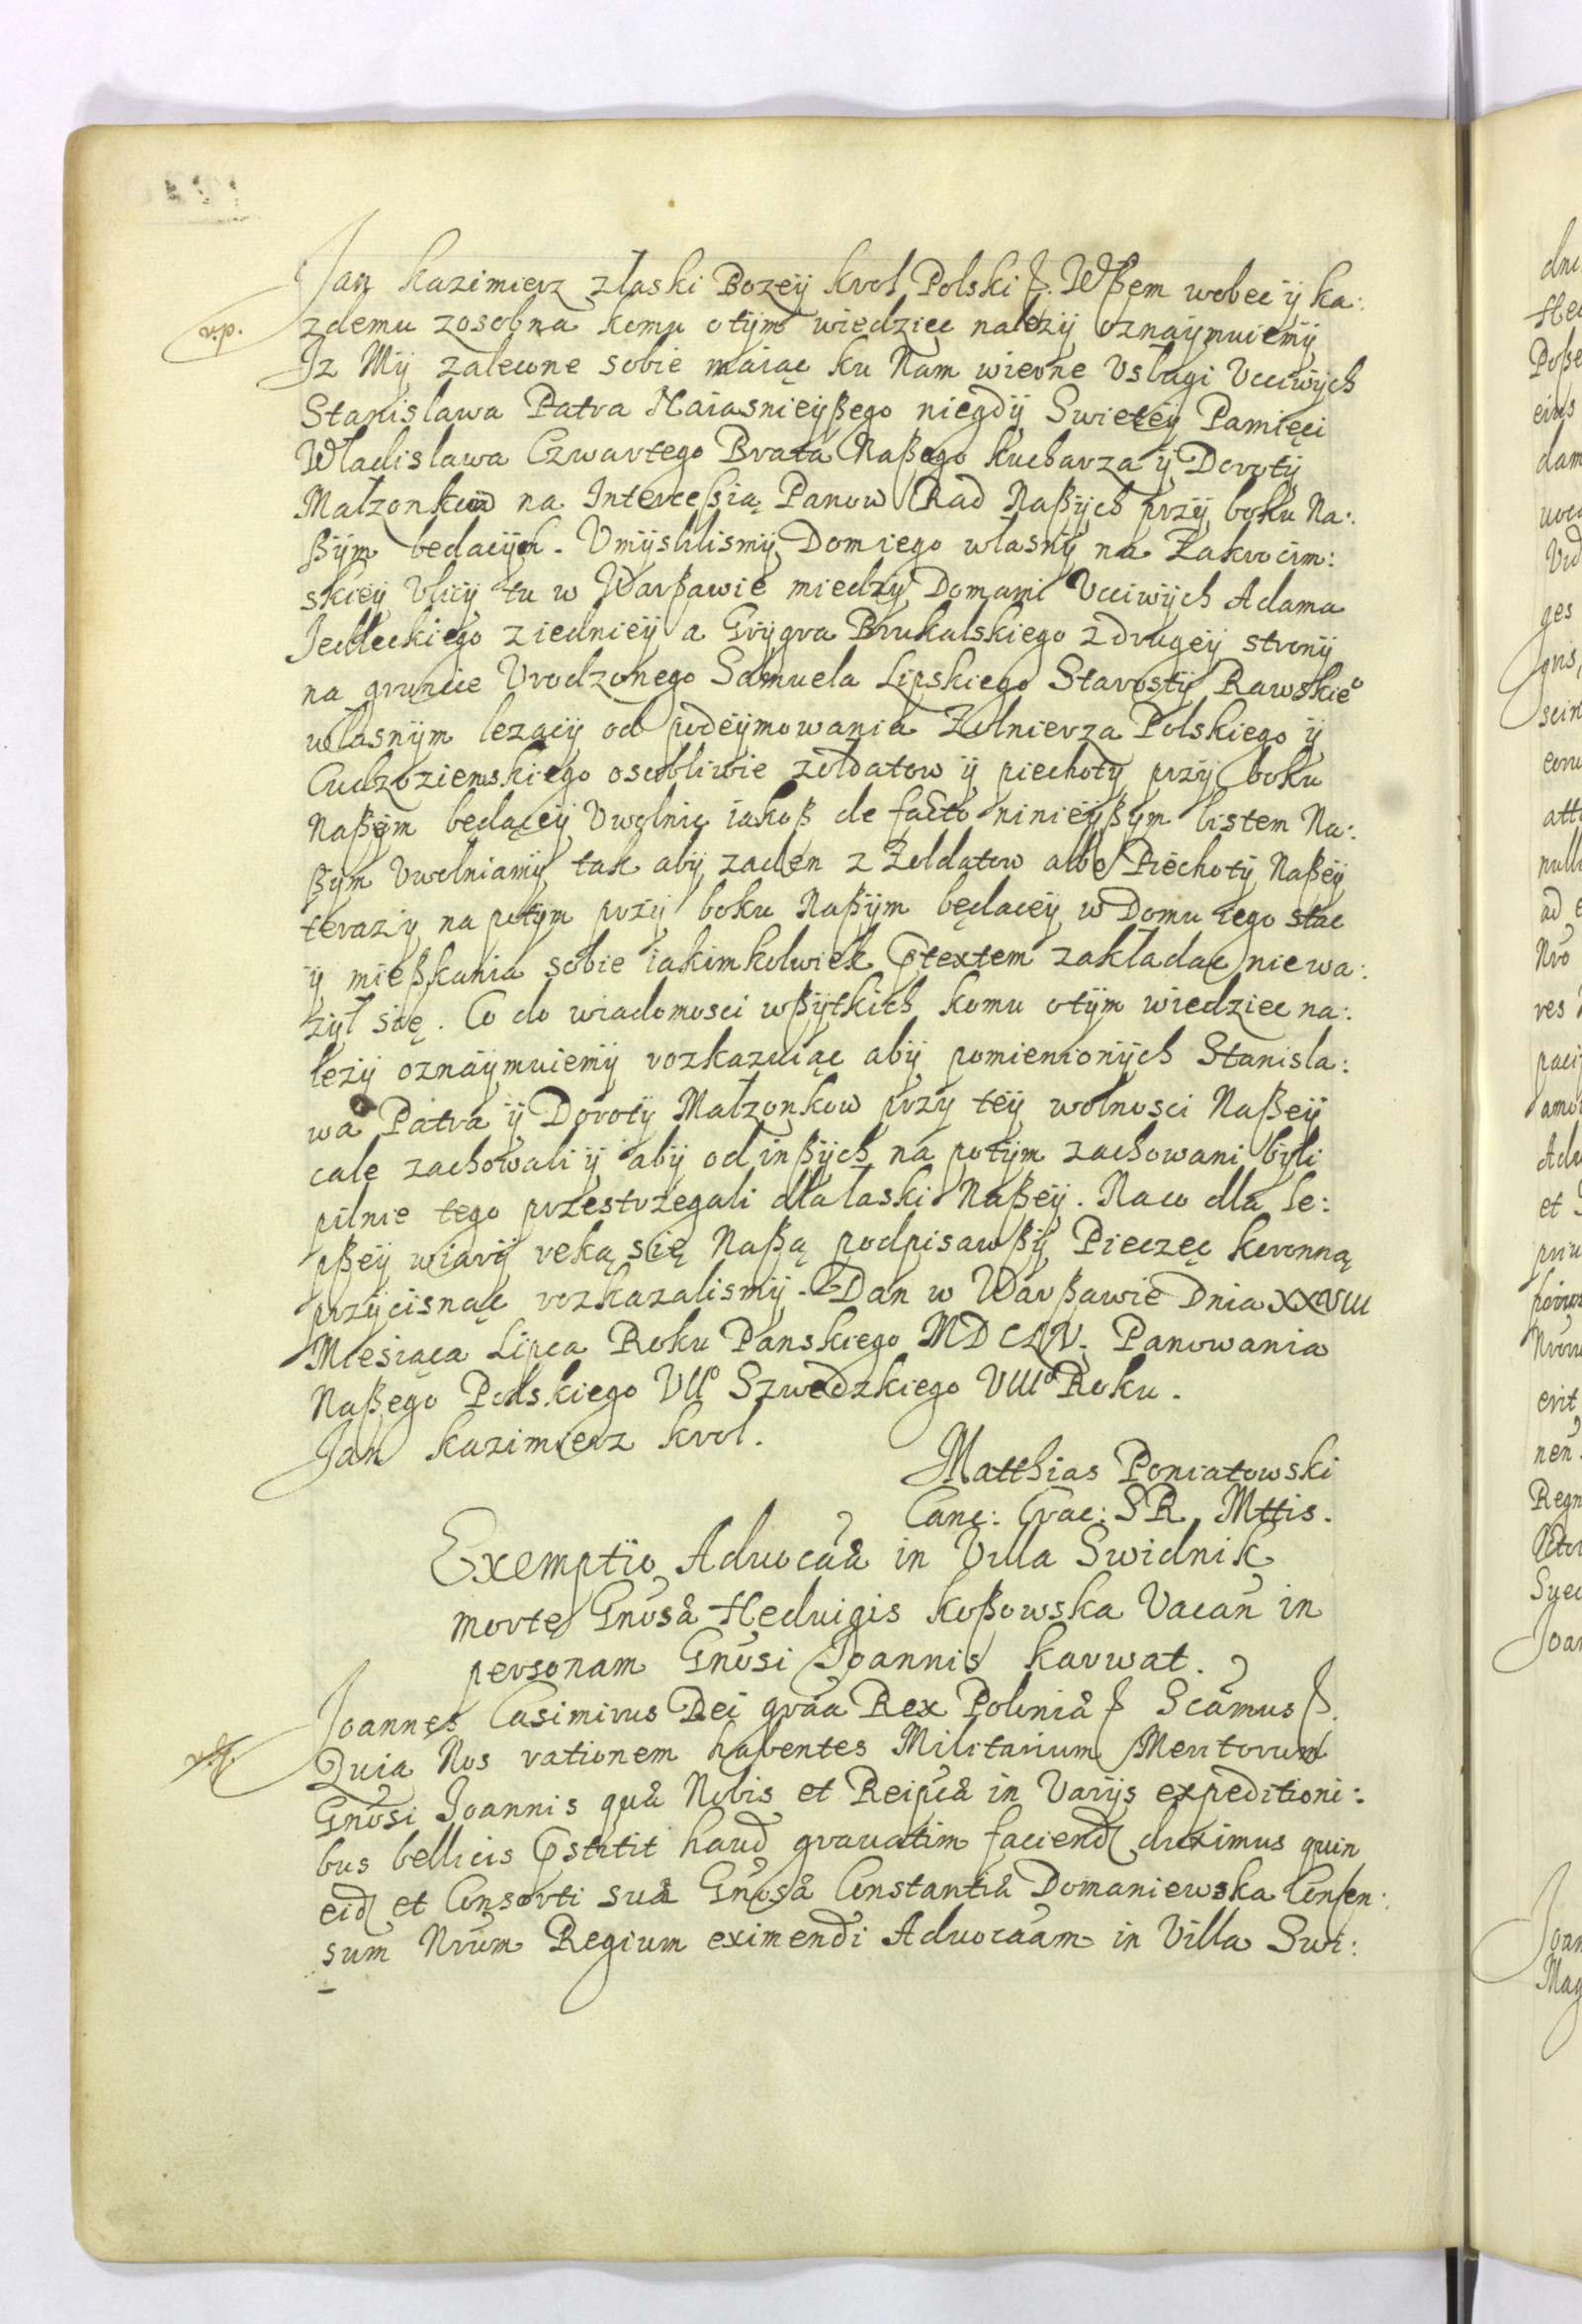 Jan Kazimierz złaski Bozeÿ Krol Polski p. Wßem wobec ÿ ka:
v.p.
zdemu zosobna komu otÿm wiedziec nalezÿ oznaÿmuiemÿ
Jz Mÿ zalecone sobie maiąc ku Nam wierne Vsługi Vcciwÿch
Stanislawa Patra Naiasnieÿßego niegdÿ Swieteÿ Pamięci
Wladislawa Czwartego Brata Naßego kucharza ÿ Dorotÿ
Małzonkow na Intercessią Panow Rad Naßÿch przÿ boku Na:
ßÿm bedacÿch. Vmÿslilismÿ Dom iego własnÿ na Zakrocim:
skieÿ Vlicÿ tu w Warßawie miedzÿ Domami Vcciwÿch Adama
Jedleckiego z iednieÿ a Grÿgra Brukalskiego z drugeÿ stronÿ
na gruncie Vrodzonego Samuela Lipskiego Starostÿ Rawskieo
własnÿm lezącÿ od podeÿmowania Zołnierza Polskiego ÿ
Cudzoziemskiego osobliwie zołdatow ÿ piechotÿ przÿ boku
Naßÿm będąceÿ Vwolnic iakoß de facto ninieÿßÿm listem Na:
ßÿm Vwolniamÿ tak abÿ zaden z Zoldatow albo Piechotÿ Naßeÿ
teraz ÿ na potÿm przÿ boku Naßÿm będaceÿ w Domu iego stac
ÿ mießkania sobie iakimkolwiek ptextem zakładac nie wa:
zÿł się. Co do wiadomosci wßÿtkich komu otÿm wiedziec na:
lezÿ oznaÿmuiemÿ rozkazuiąc abÿ pomienionÿch Stanisla:
wa Patra ÿ Dorotÿ Małzonkow przy teÿ wolnosci Naßeÿ
cale zachowali ÿ abÿ od inßÿch na potÿm zachowani bÿli
pilnie tego przestrzegali dla laski Naßeÿ. Na co dla le:
pßeÿ wiarÿ ręką się Naßą podpisawßÿ Pieczęc koronną
przÿcisnąc rozkazalismÿ. Dan w Warßawie Dnia XXVIII
Miesiąca Lipca Roku Panskiego MDCLIV. Panowania
Naßego Polskiego VIIo Szwedzkiego VIIIo Roku.
Jan Kazimierz Krol.
Matthias Poniatowski
Canc: Crac: SR. Mttis.
Exemptio Aduocaa in Villa Swidnik
morte Gnosa Heduigis Koßowska Vacan in
personam Gnosi Joannis Karwat.
Joannes Casimirus Dei graa Rex Polonia p Scamus p.
Quia Nos rationem habentes Militarium Meritorum
Gnosi Joannis qua Nobis et Reipca in Varijs expeditioni:
bus bellicis pstitit haud grauatim faciend duximus quin
eid et Consorti sua Gnosa Constantia Domaniewska Consen:
sum Nrum Regium eximendi Aduocaam in Villa Swi: